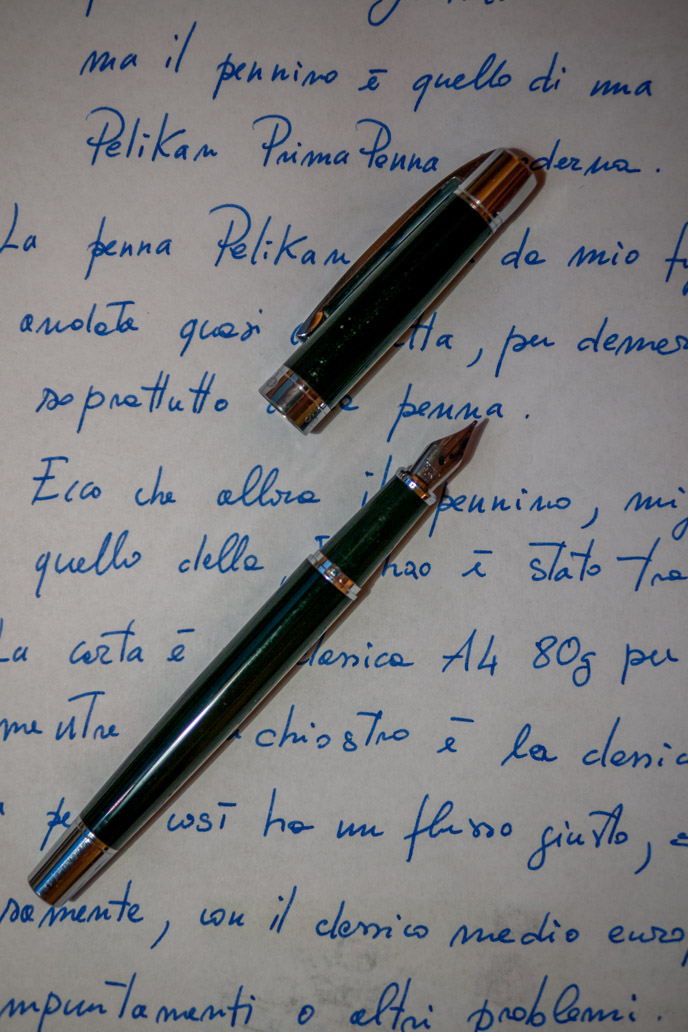 ma il pennino è quello di una
Pelikan PrimaPenna derna.
La penna Pelikan da mio
andata quasi tta, per
soprattutto penna.
Ecco che allora il pennino,
quello della, è stato
La carta è classica A4 80g per
mentre chiostro è la
così ha un flusso giusto,
samente, con il classico medio
mpuntamenti o altri problemi.